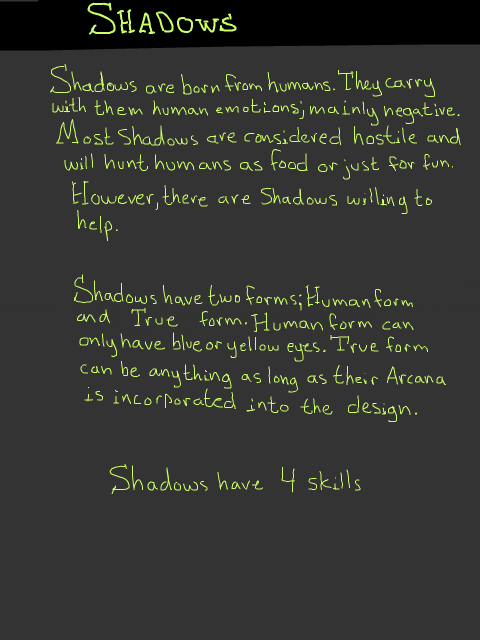 SHADOWS
Shadows are born from humans. They carry
with them human emotions; mainly negative.
Most Shadows are considered hostile and
will hunt humans as food or just for fun.
However, there are Shadows willing to
help.
Shadows have two forms; Human form
and True form. Human form can
only have blue or yellow eyes. True form
can be anything as long as their Arcana
is incorporated into the design.
Shadows have 4 skills